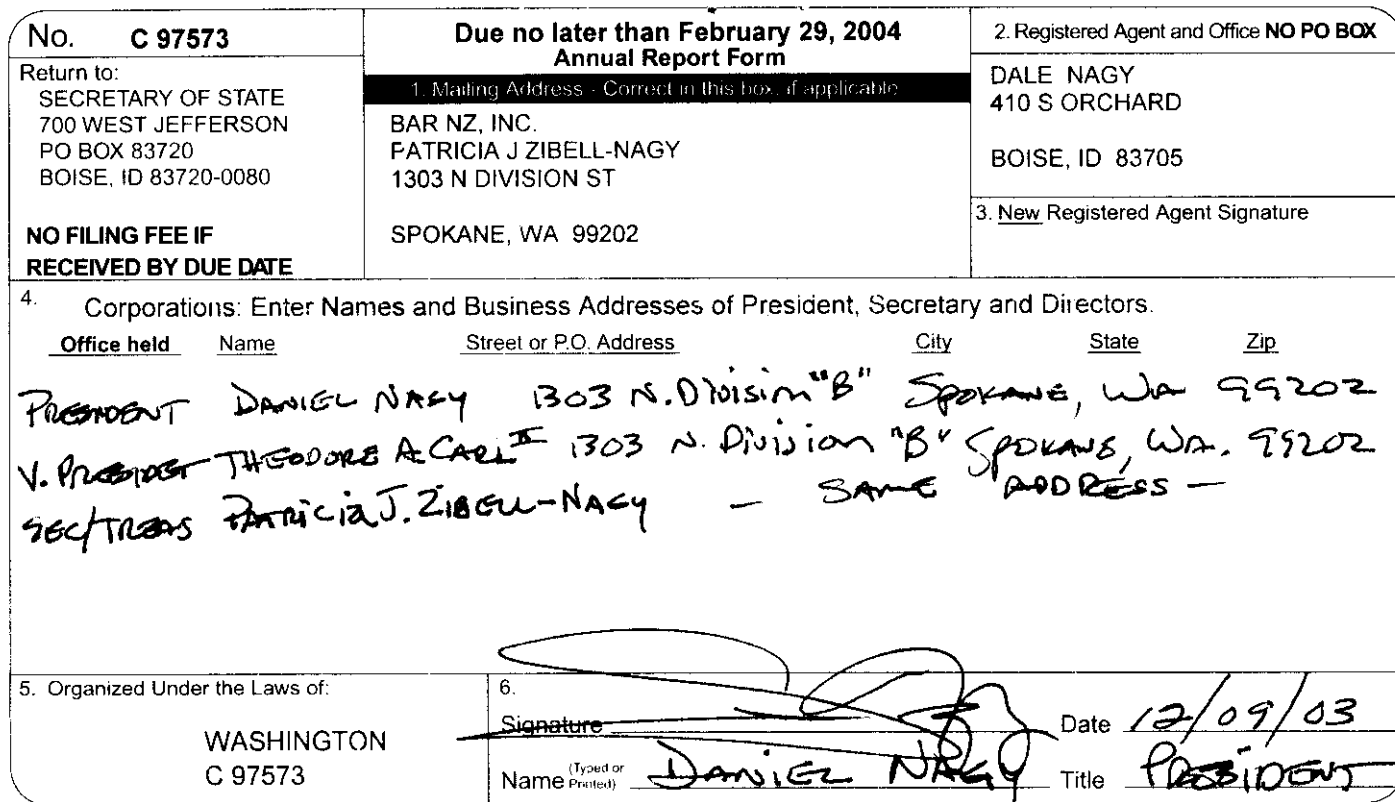 No. C 97573
Return to:
SECRETARY OF STATE
700 WEST JEFFERSON
PO BOX 83720
BOISE, ID 83720-0080
NO FILING FEE IF
RECEIVED BY DUE DATE
Due no later than February 29, 2004
Annual Report Form
1. Mailing Address - Correct in this box, if applicable
BAR NZ, INC.
PATRICIA J ZIBELL-NAGY
1303 N DIVISION ST
SPOKANE, WA 99202
2. Registered Agent and Office NO PO BOX
DALE NAGY
410 S ORCHARD
BOISE, ID 83705
3. New Registered Agent Signature
4. Corporations: Enter Names and Business Addresses of President, Secretary and Directors.
Office held Name Street or P.O. Address City State Zip
PRESIDENT DANIEL NAGY 1303 N. Division "B" SPOKANE, WA 99202
V. PRESIDENT THEODORE A. CARL II 1303 N. Division "B" SPOKANE, WA. 99202
SEC/TREAS PATRICIA J. ZIBELL-NAGY - SAME ADDRESS -
5. Organized Under the Laws of:
WASHINGTON
C 97573
6.
Signature Date 12/09/03
Name (Typed or Printed) DANIEL NAGY Title PRESIDENT